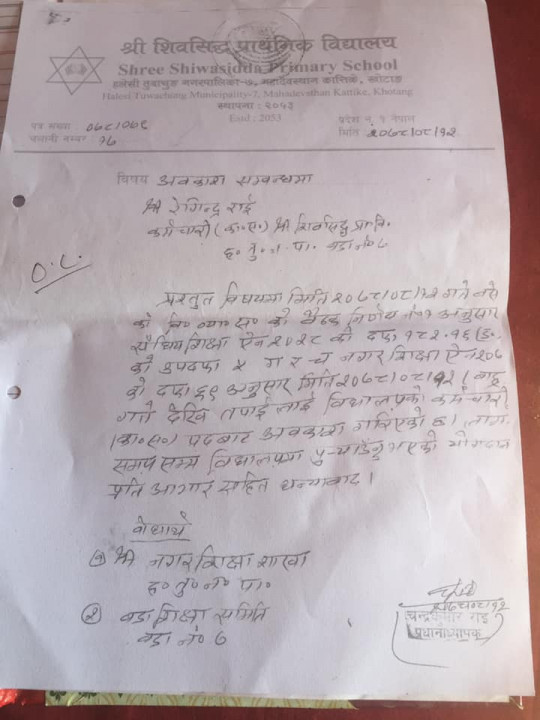 श्री शिवसिद्ध प्राथमिक विद्यालय
Shree Shiwasidda Primary School
हलेसी तुवाचुङ नगरपालिका-७, महादेवस्थान कात्तिके, खोटाङ
Halesi Tuwachung Municipality-7, Mahadevsthan Kattike, Khotang
स्थापना : २०५३
Estd : 2053
पत्र संख्या ०७८/०७९
प्रदेश नं. १ नेपाल
चलानी नम्बर : १६
मिति २०७८/०८/१२
विषय अवकाश सम्बन्धमा
श्री रेगिन्द्र राई
कर्मचारी (का.स.) श्री शिवसिद्ध प्रा.वि.
ह. तु. न. पा. वडा नं ७
O.C.
प्रस्तुत विषयमा मिति २०७८/०८/१२ गते बसे
को वि० व्य० स० को बैठक निर्णय नं १ अनुसार
शिक्षा ऐन २०२८ को दफा
को उपदफा ५ ग र च नगर शिक्षा ऐन २०७
को दफा ६९ अनुसार मिति २०७८/०८/१२
गते देखि तपाईलाई विद्यालयको कर्मचारी
(का०स०) पदबाट अवकाश गरिएको छ।
समय सम्म विद्यालयमा पुर्‍याउनु भएको योगदान
प्रति आभार सहित धन्यवाद।
बोधार्थ
१) श्री नगर शिक्षा शाखा
ह० तु० न० पा०
२) वडा शिक्षा समिति
वडा नं० ७
२०७८/०८/१२
चन्द्रकुमार राई
प्रधानाध्यापक